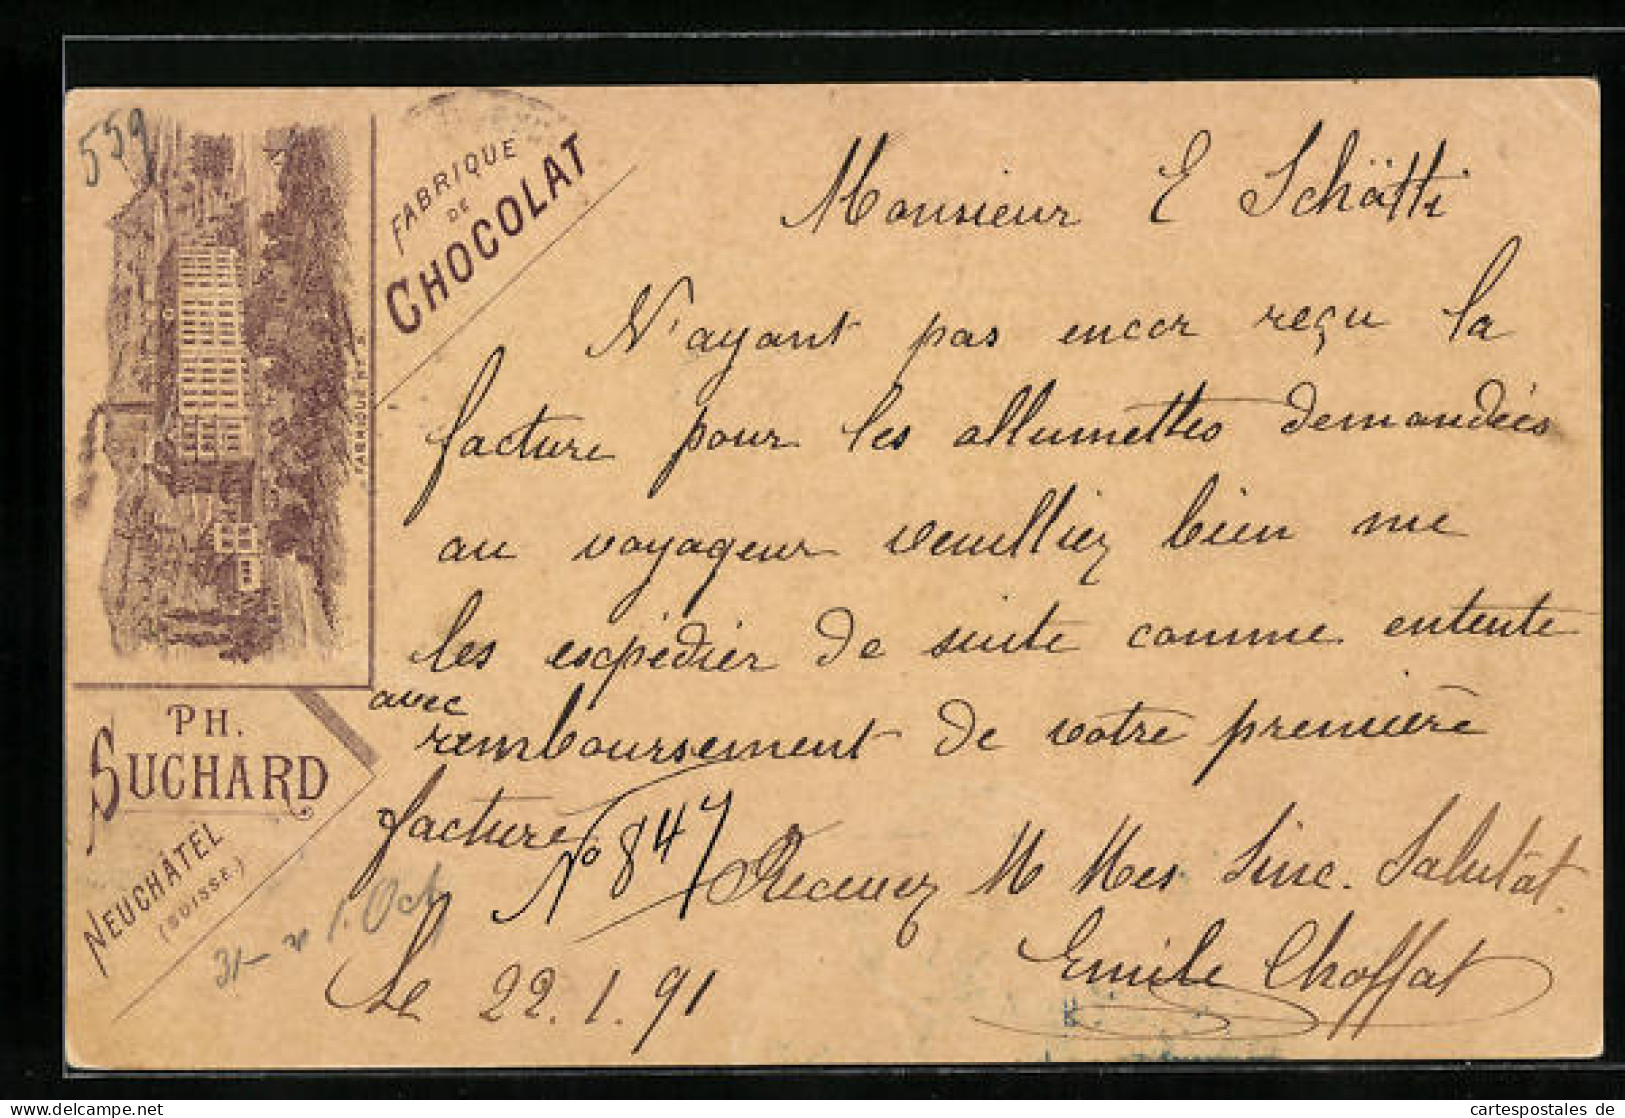 559
FABRIQUE
DE
CHOCOLAT
FABRIQUE No 5.
PH.
SUCHARD
NEUCHÂTEL
(SUISSE.)
Monsieur E Schätti
N'ayant pas encor reçu la
facture pour les allumettes demandées
au voyageur veuilliez bien me
les expédier de suite comme entente
avec
remboursement de votre première
facture No 847
Recevez M Mes Sinc. Salutat.
Le 22.1.91
Emile Choffat
1. Oct
cartespostales de